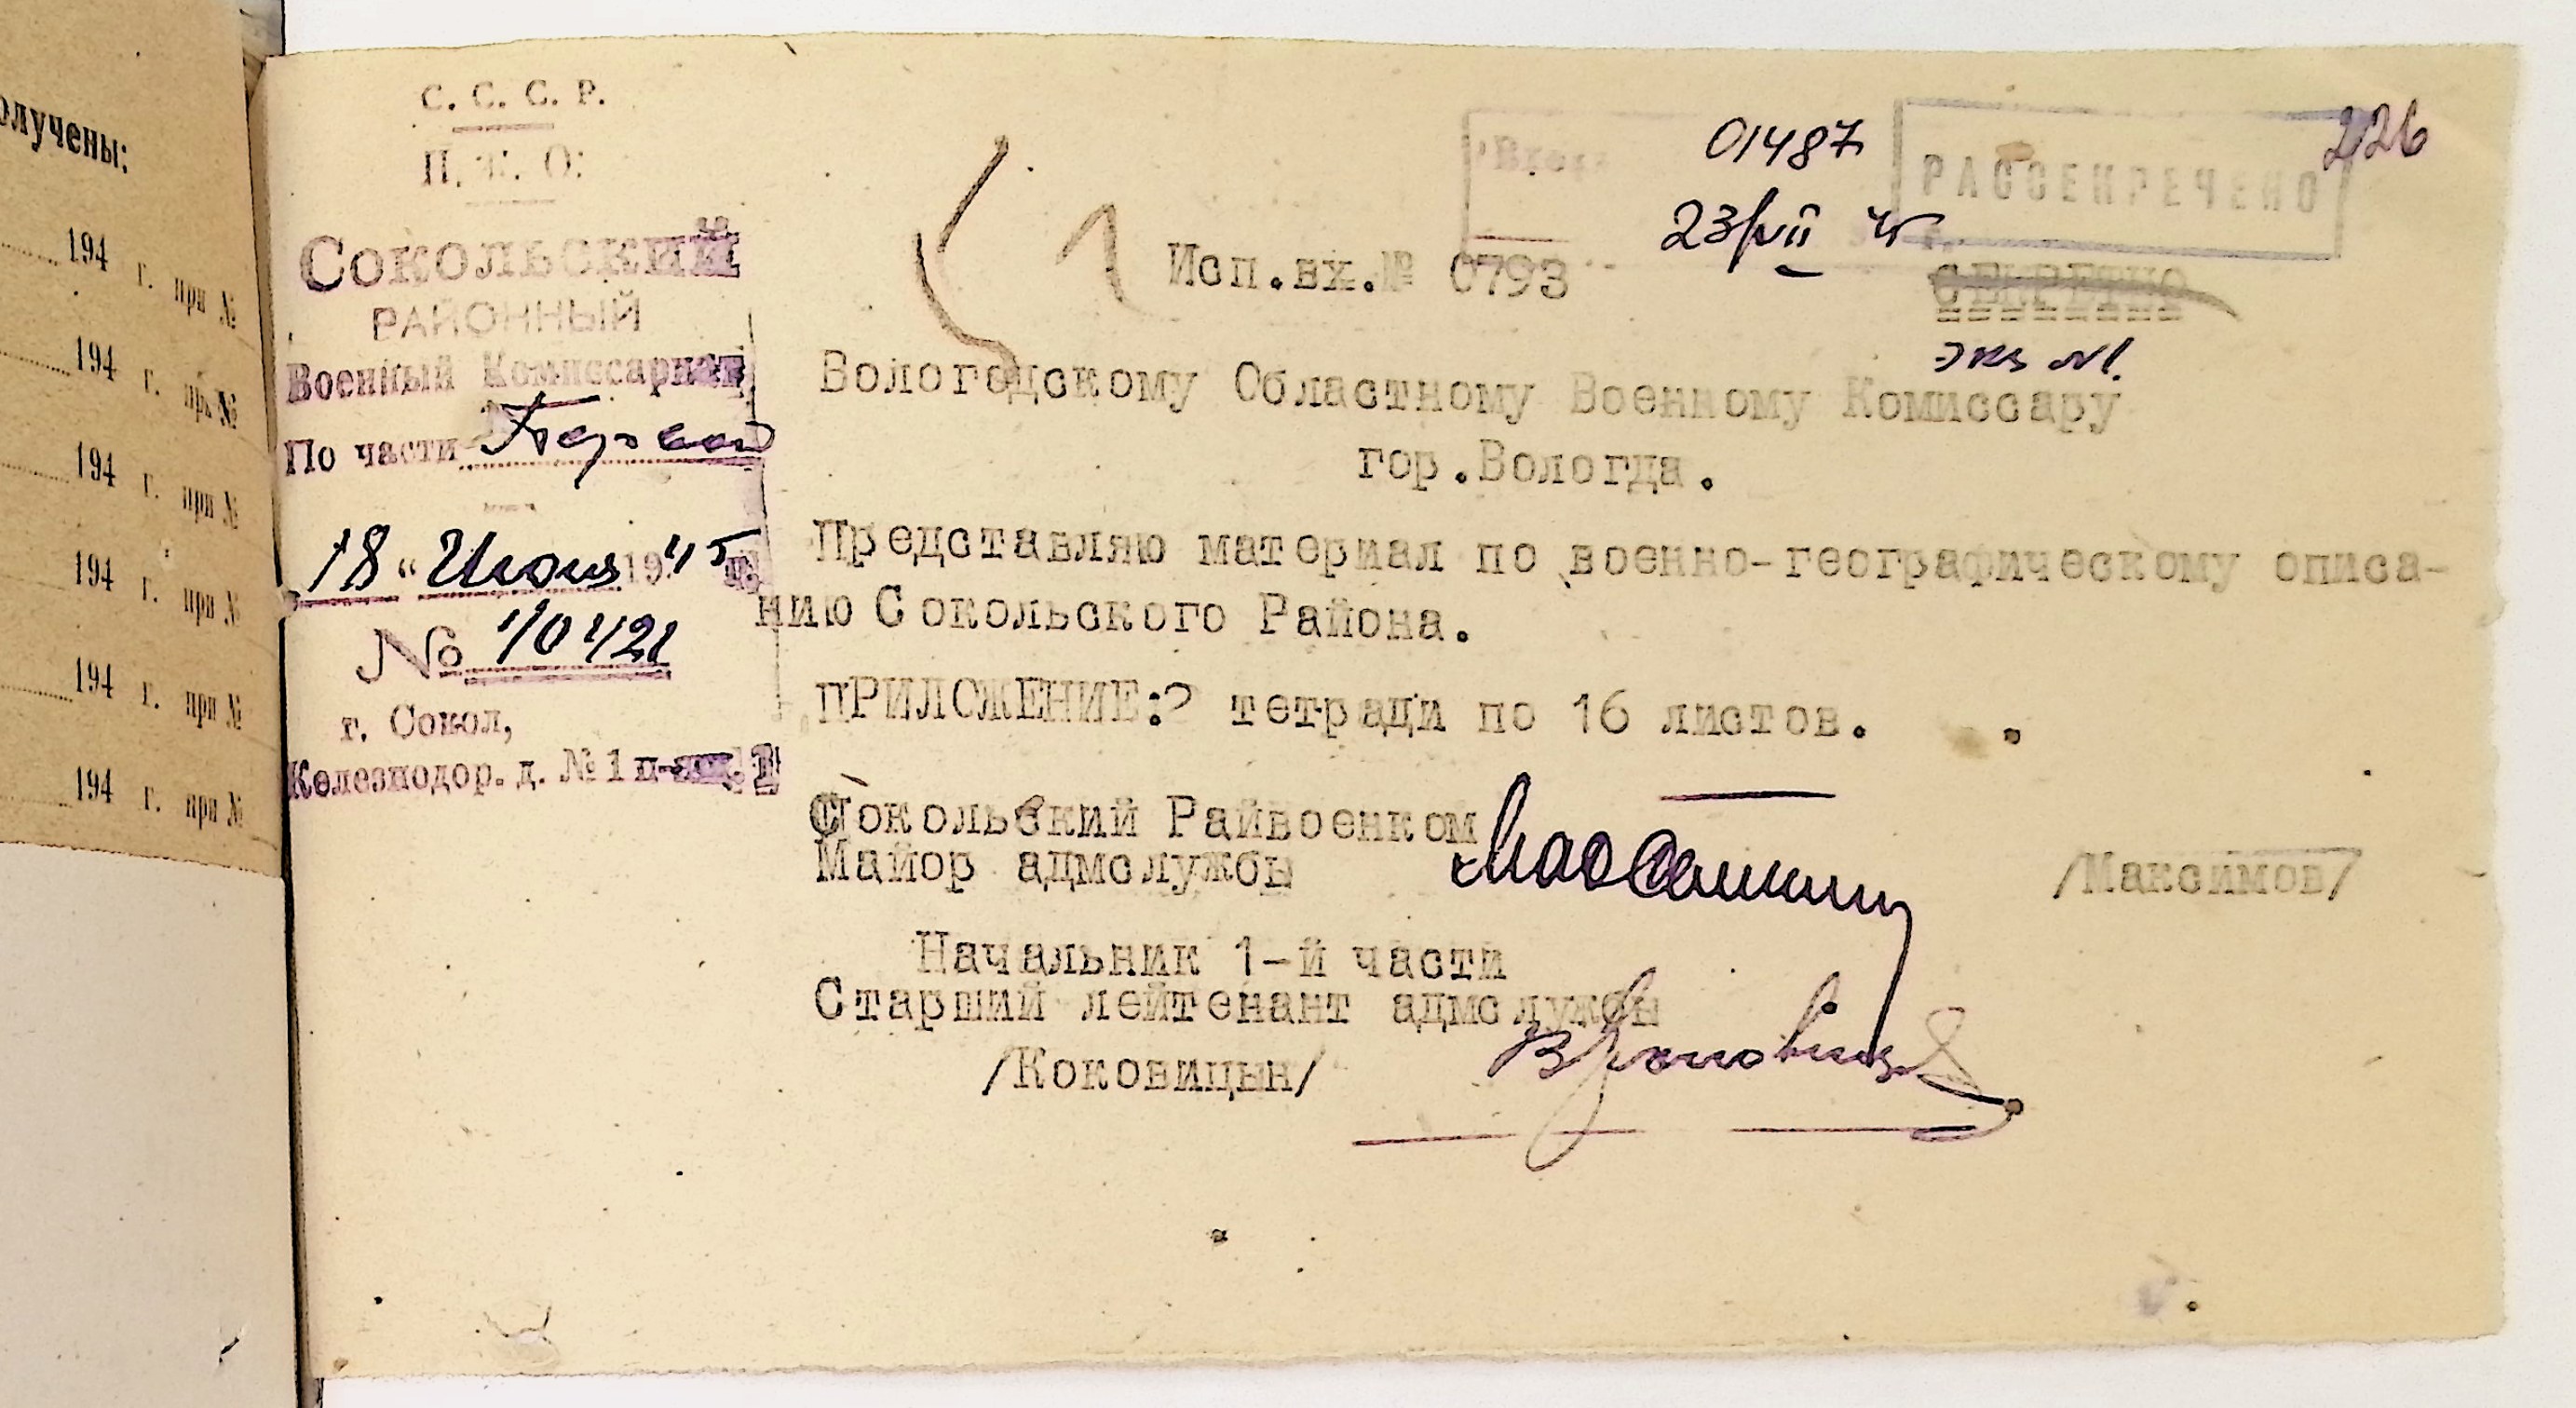 олучены:
194 г. при №
194 г. при №
194 г. при №
194 г. при №
194 г. при №
194 г. при №
С. С. С. Р.
Н. К. О.
СОКОЛЬСКИЙ
РАЙОННЫЙ
Военный Комиссариат
По части Первой
18 " Июня 1945 г.
№
г. Сокол,
Железнодор. д. № 1
01487
23/VII 45
РАССЕКРЕЧЕНО
226
Исп.вх.№ 0793
СЕКРЕТНО
экз №1.
Вологодскому Областному Военному Комиссару
гор.Вологда.
Представляю материал по военно-географическому описа-
нию Сокольского Района.
ПРИЛОЖЕНИЕ:2 тетради по 16 листов.
Сокольский Райвоенком
Майор адмслужбы
/Максимов/
Начальник 1-й части
Старший лейтенант адмслужбы
/Коковицын/